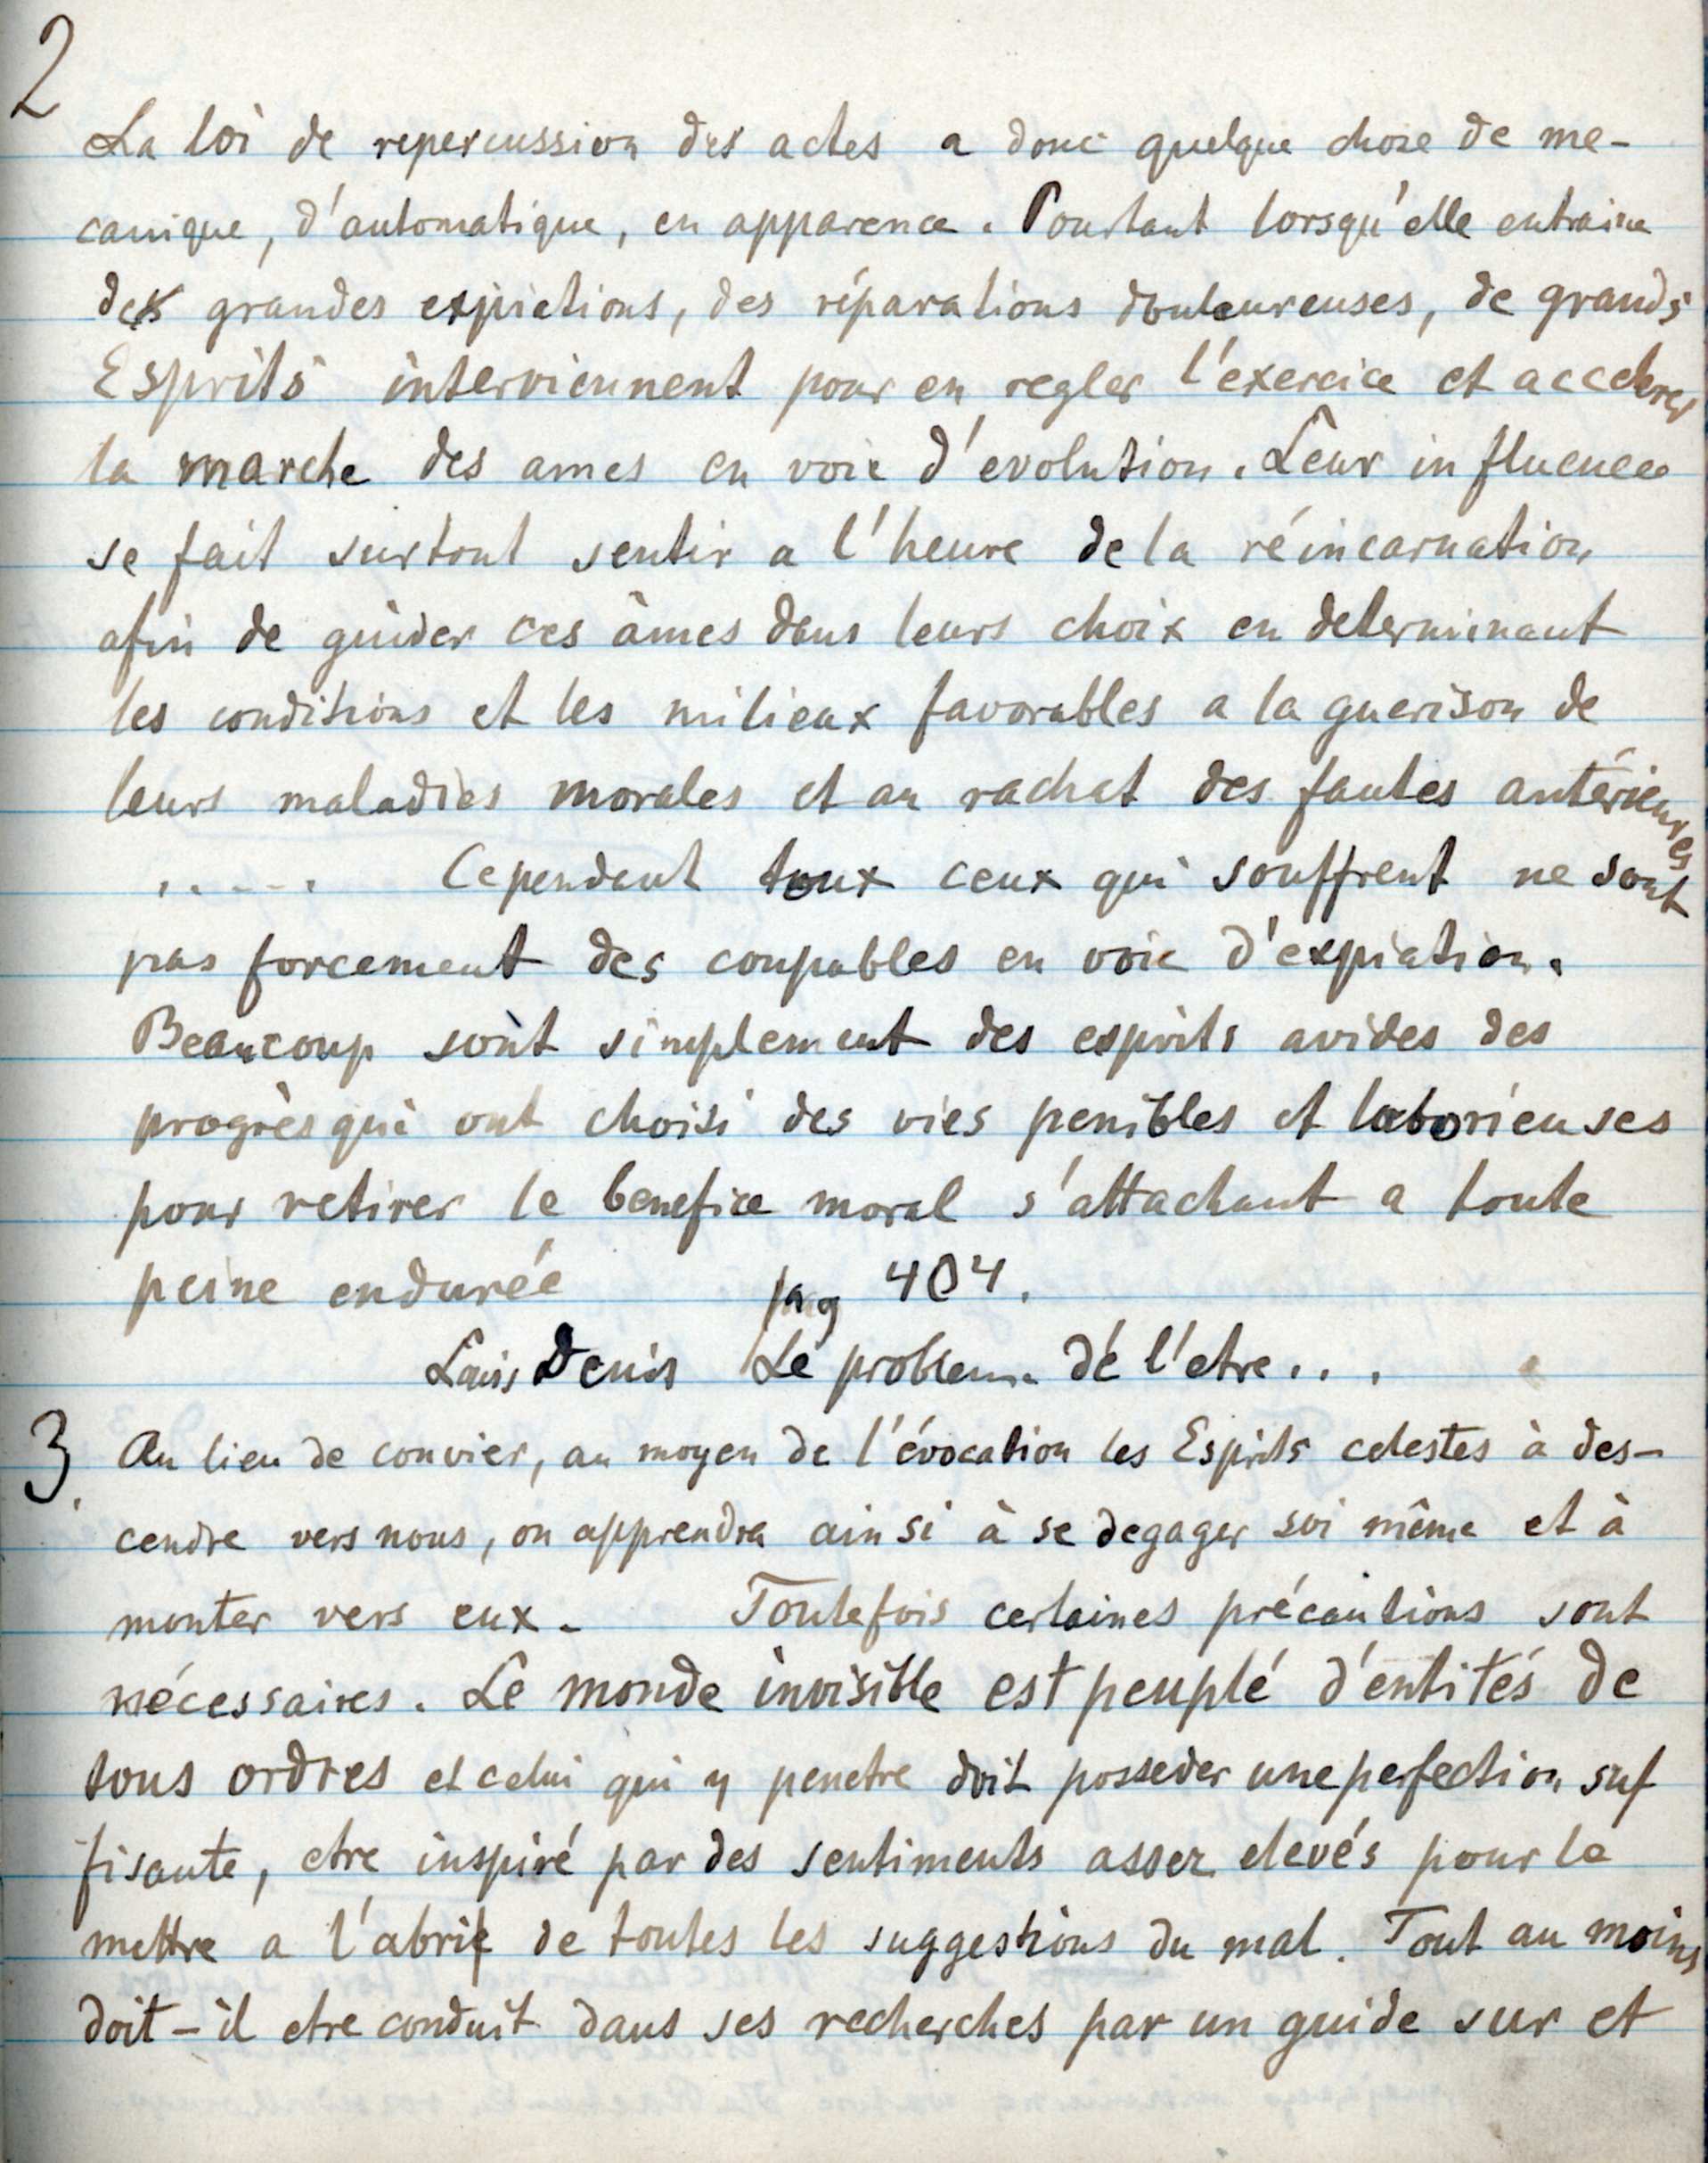 2
La loi de repercussion des actes a donc quelque chose de me-
canique, d'automatique, en apparence. Pourtant lorsqu'elle entraine
des grandes expiations, des réparations douleureuses, de grands
Esprits interviennent pour en regler l'exercice et accelerer
la marche des ames en voie d'evolution. Leur influence
se fait surtout sentir a l'heure de la réincarnation
afin de guider ces âmes dans leurs choix en determinant
les conditions et les milieux favorables a la guerison de
leurs maladies morales et au rachat des fautes antérieures
..... Cependant toux ceux qui souffrent ne sont
pas forcement des coupables en voie d'expiation.
Beaucoup sont simplement des esprits avides des
progrès qui ont choisi des vies penibles et laborieuses
pour retirer le benefice moral s'attachant a toute
peine endurée pag 404.
Denis Le problem. dé l'etre...
3. Au lieu de convier, au moyen de l'évocation les Esprits celestes à des-
cendre vers nous, on apprendra ainsi à se degager soi même et à
monter vers eux. Toutefois certaines précautions sont
nécessaires. Le monde invisible est peuplé d'entités de
tous ordres et celui qui y penetre doit posseder une perfection suf
fisante, etre inspiré par des sentiments assez elevés pour le
mettre a l'abri de toutes les suggestions du mal. Tout au moins
doit-il etre conduit dans ses recherches par un guide sur et